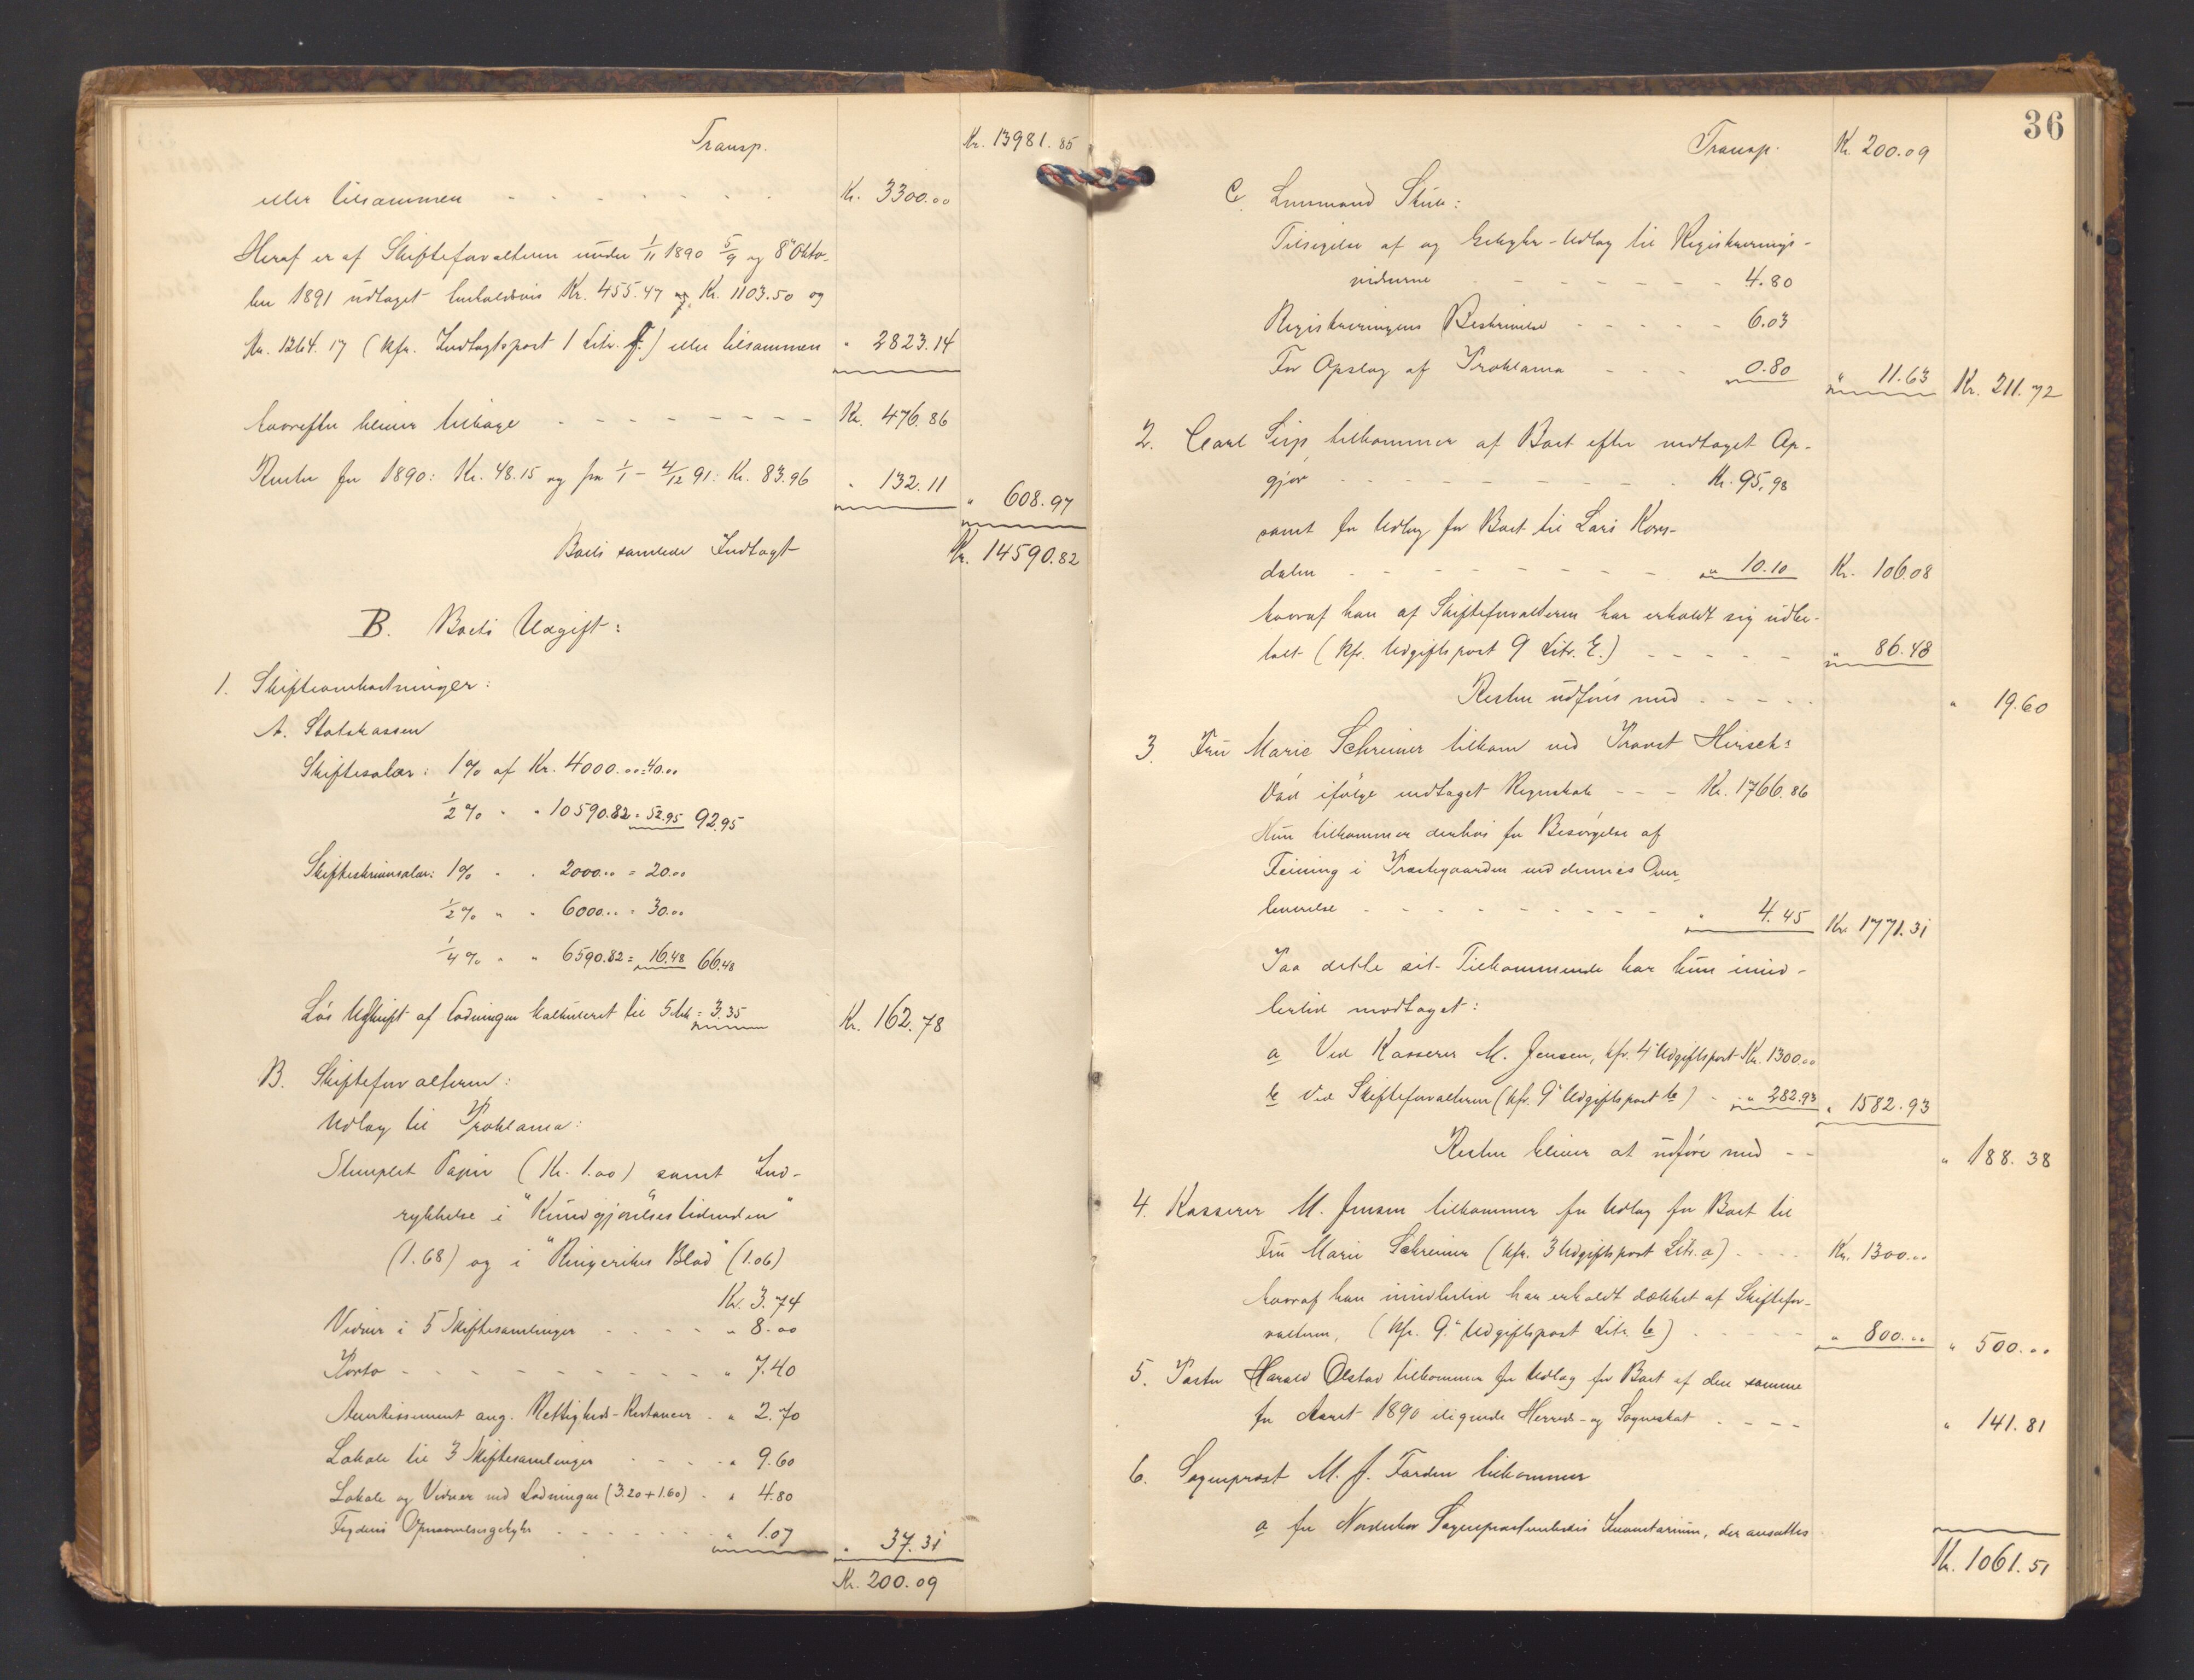 Transp. Kr. 13981.85
eller tilsammen - - - - - - Kr. 3300.00
Heraf er af Skifteforvalteren under 1/11 1890 5/9 og 8' Okto-
ber 1891 udtaget henholdsvis Kr. 455.47 og Kr. 1103.50 og
Kr. 1264.17 (kfr. Indtægtspost 1 Litr. f.) eller tilsammen " 2823.14
hvorefter bliver tilbage - - - - - - - Kr. 476.86
Renter for 1890: Kr. 48.15 og fra 1/1 - 4/12 91: Kr. 83.96 " 132.11 " 608.97
Boets samlede Indtægt Kr. 14590.82
B. Boets Udgift:
1. Skifteomkostninger:
A. Statskassen
Skiftesalær: 1% af Kr. 4000.00 = 40.00
1/2 % " " 10590.82 = 52.95 92.95
Skifteskriversalær: 1% " " 2000.00 = 20.00
1/2 % " " 6000.00 = 30.00
1/4 % " " 6590.82 = 16.48 66.48
Løs Udskrift af Lodningen kalkuleret til 5 Ark = 3.35 Kr. 162.78
B. Skifteforvalteren:
Udlæg til Proklama:
Stemplet Papir (Kr. 1.00) samt Ind-
rykkelse i "Kundgjørelsestidenden"
(1.68) og i "Ringerikes Blad" (1.06)
Kr. 3.74
Vidner i 5 Skiftesamlinger - - - - " 8.00
Porto - - - - - - - - - " 7.40
Avertissement ang. Rettigheds-Restancer - " 2.70
Lokale til 3 Skiftesamlinger - - - - " 9.60
Lokale og Vidner ved Lodningen (3.20 + 1.60) - " 4.80
Fogdens - - - - - " 1.07 " 37.31
Kr. 200.09
36
Transp. Kr. 200.09
C. Lensmand
Tilsigelse af og Gebyhr-Udlæg til Registrerings-
vidnerne - - - - - - - 4.80
Registreringens Beskrivelse - - - - - 6.03
For Opslag af Proklama - - - 0.80 " 11.63 Kr. 211.72
2. Carl tilkommer af Boet efter vedtaget Op-
gjør - - - - - - - - Kr. 95.98
samt for Udlæg for Boet til Lars Kors-
dalen - - - - - - - - " 10.10 Kr. 106.08
hvoraf han af Skifteforvalteren har erholdt sig udbe-
talt (kfr. Udgiftspost 9 Litr. E.) - - - - - " 86.48
Resten udføres med - - - - - " 19.60
3. Fru Marie Schreiner tilkom ved Provst Hirschs
Død ifølge vedtaget Regnskab - - - Kr. 1766.86
Hun tilkommer derhos for Besørgelse af
Feining i Præstegaarden ved dennes Over-
leverelse - - - - - - - - " 4.45 Kr. 1771.31
Paa dette sit Tilkommende har hun imid-
lertid modtaget:
a Ved Kasserer M. Jensen, kfr. 4' Udgiftspost Kr. 1300.00
b Ved Skifteforvalteren (kfr. 9' Udgiftspost b) - " 282.93 " 1582.93
Resten bliver at udføre med - - " 188.38
4. Kasserer M. Jensen tilkommer for Udlæg for Boet til
Fru Marie Schreiner (kfr. 3 Udgiftspost Litr. a) - - - - Kr. 1300.00
hvoraf han imidlertid har erholdt dækket af Skiftefor-
valteren, (kfr. 9' Udgiftspost Litr. b) - - - - - " 800.00 " 500.00
5. Pastor Harald Olstad tilkommer for Udlæg for Boet af den samme
for Aaret 1890 ilignede Herreds- og Sogneskat - - - - " 141.81
6. Sogneprest M. J. Færden tilkommer
a for Norderhov Sogneprestembedes Inventarium, der ansattes
Kr. 1061.51